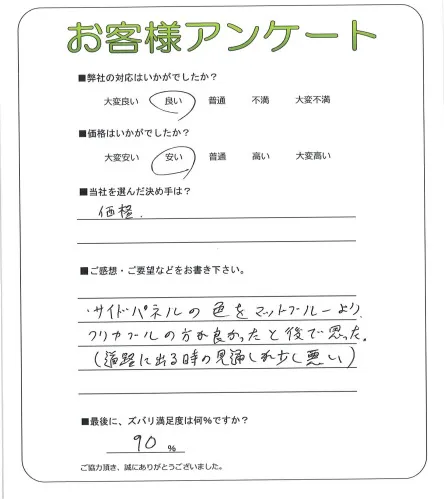 お客様アンケート
■弊社の対応はいかがでしたか？
大変良い 良い 普通 不満 大変不満
■価格はいかがでしたか？
大変安い 安い 普通 高い 大変高い
■当社を選んだ決め手は？
価格.
■ご感想・ご要望などをお書き下さい。
・サイドパネルの色をマットブルーより
クリアブールの方が良かったと後で思った。
(道路に出る時の見通しが少し悪い)
■最後に、ズバリ満足度は何%ですか？
90 %
ご協力頂き、誠にありがとうございました。